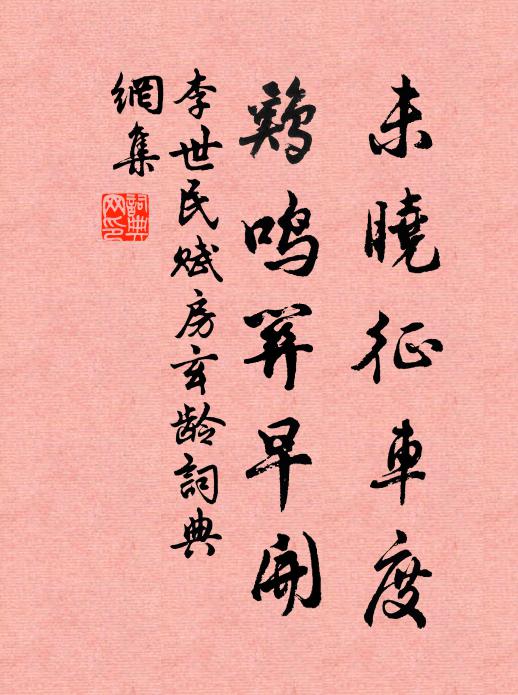 未曉征車度
鷄鳴關早開
李世民赋房玄龄詞典
網集
詞典
网印